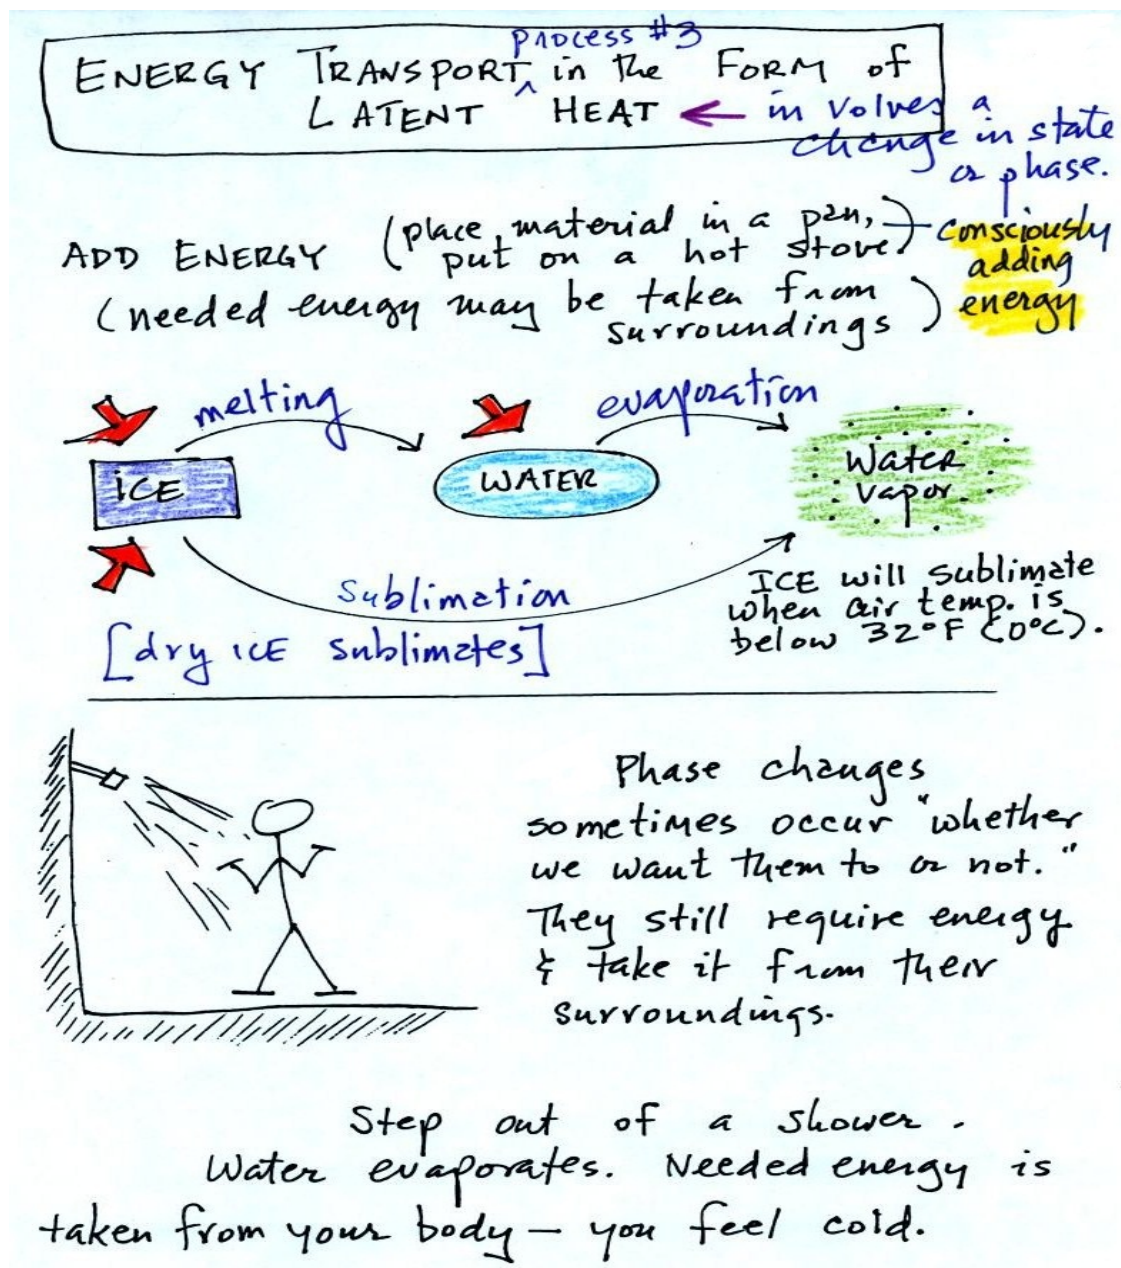 process #3
ENERGY TRANSPORT ^ in the FORM of
LATENT HEAT ← involves a
change in state
or phase.
ADD ENERGY (place material in a pan,
put on a hot stove) consciously
adding
energy
(needed energy may be taken from
surroundings)
melting
evaporation
ICE
WATER
Water
vapor
Sublimation
[dry ICE sublimates]
ICE will sublimate
when air temp. is
below 32°F (0°C).
Phase changes
sometimes occur "whether
we want them to or not."
They still require energy
& take it from their
surroundings.
Step out of a shower.
Water evaporates. Needed energy is
taken from your body — you feel cold.